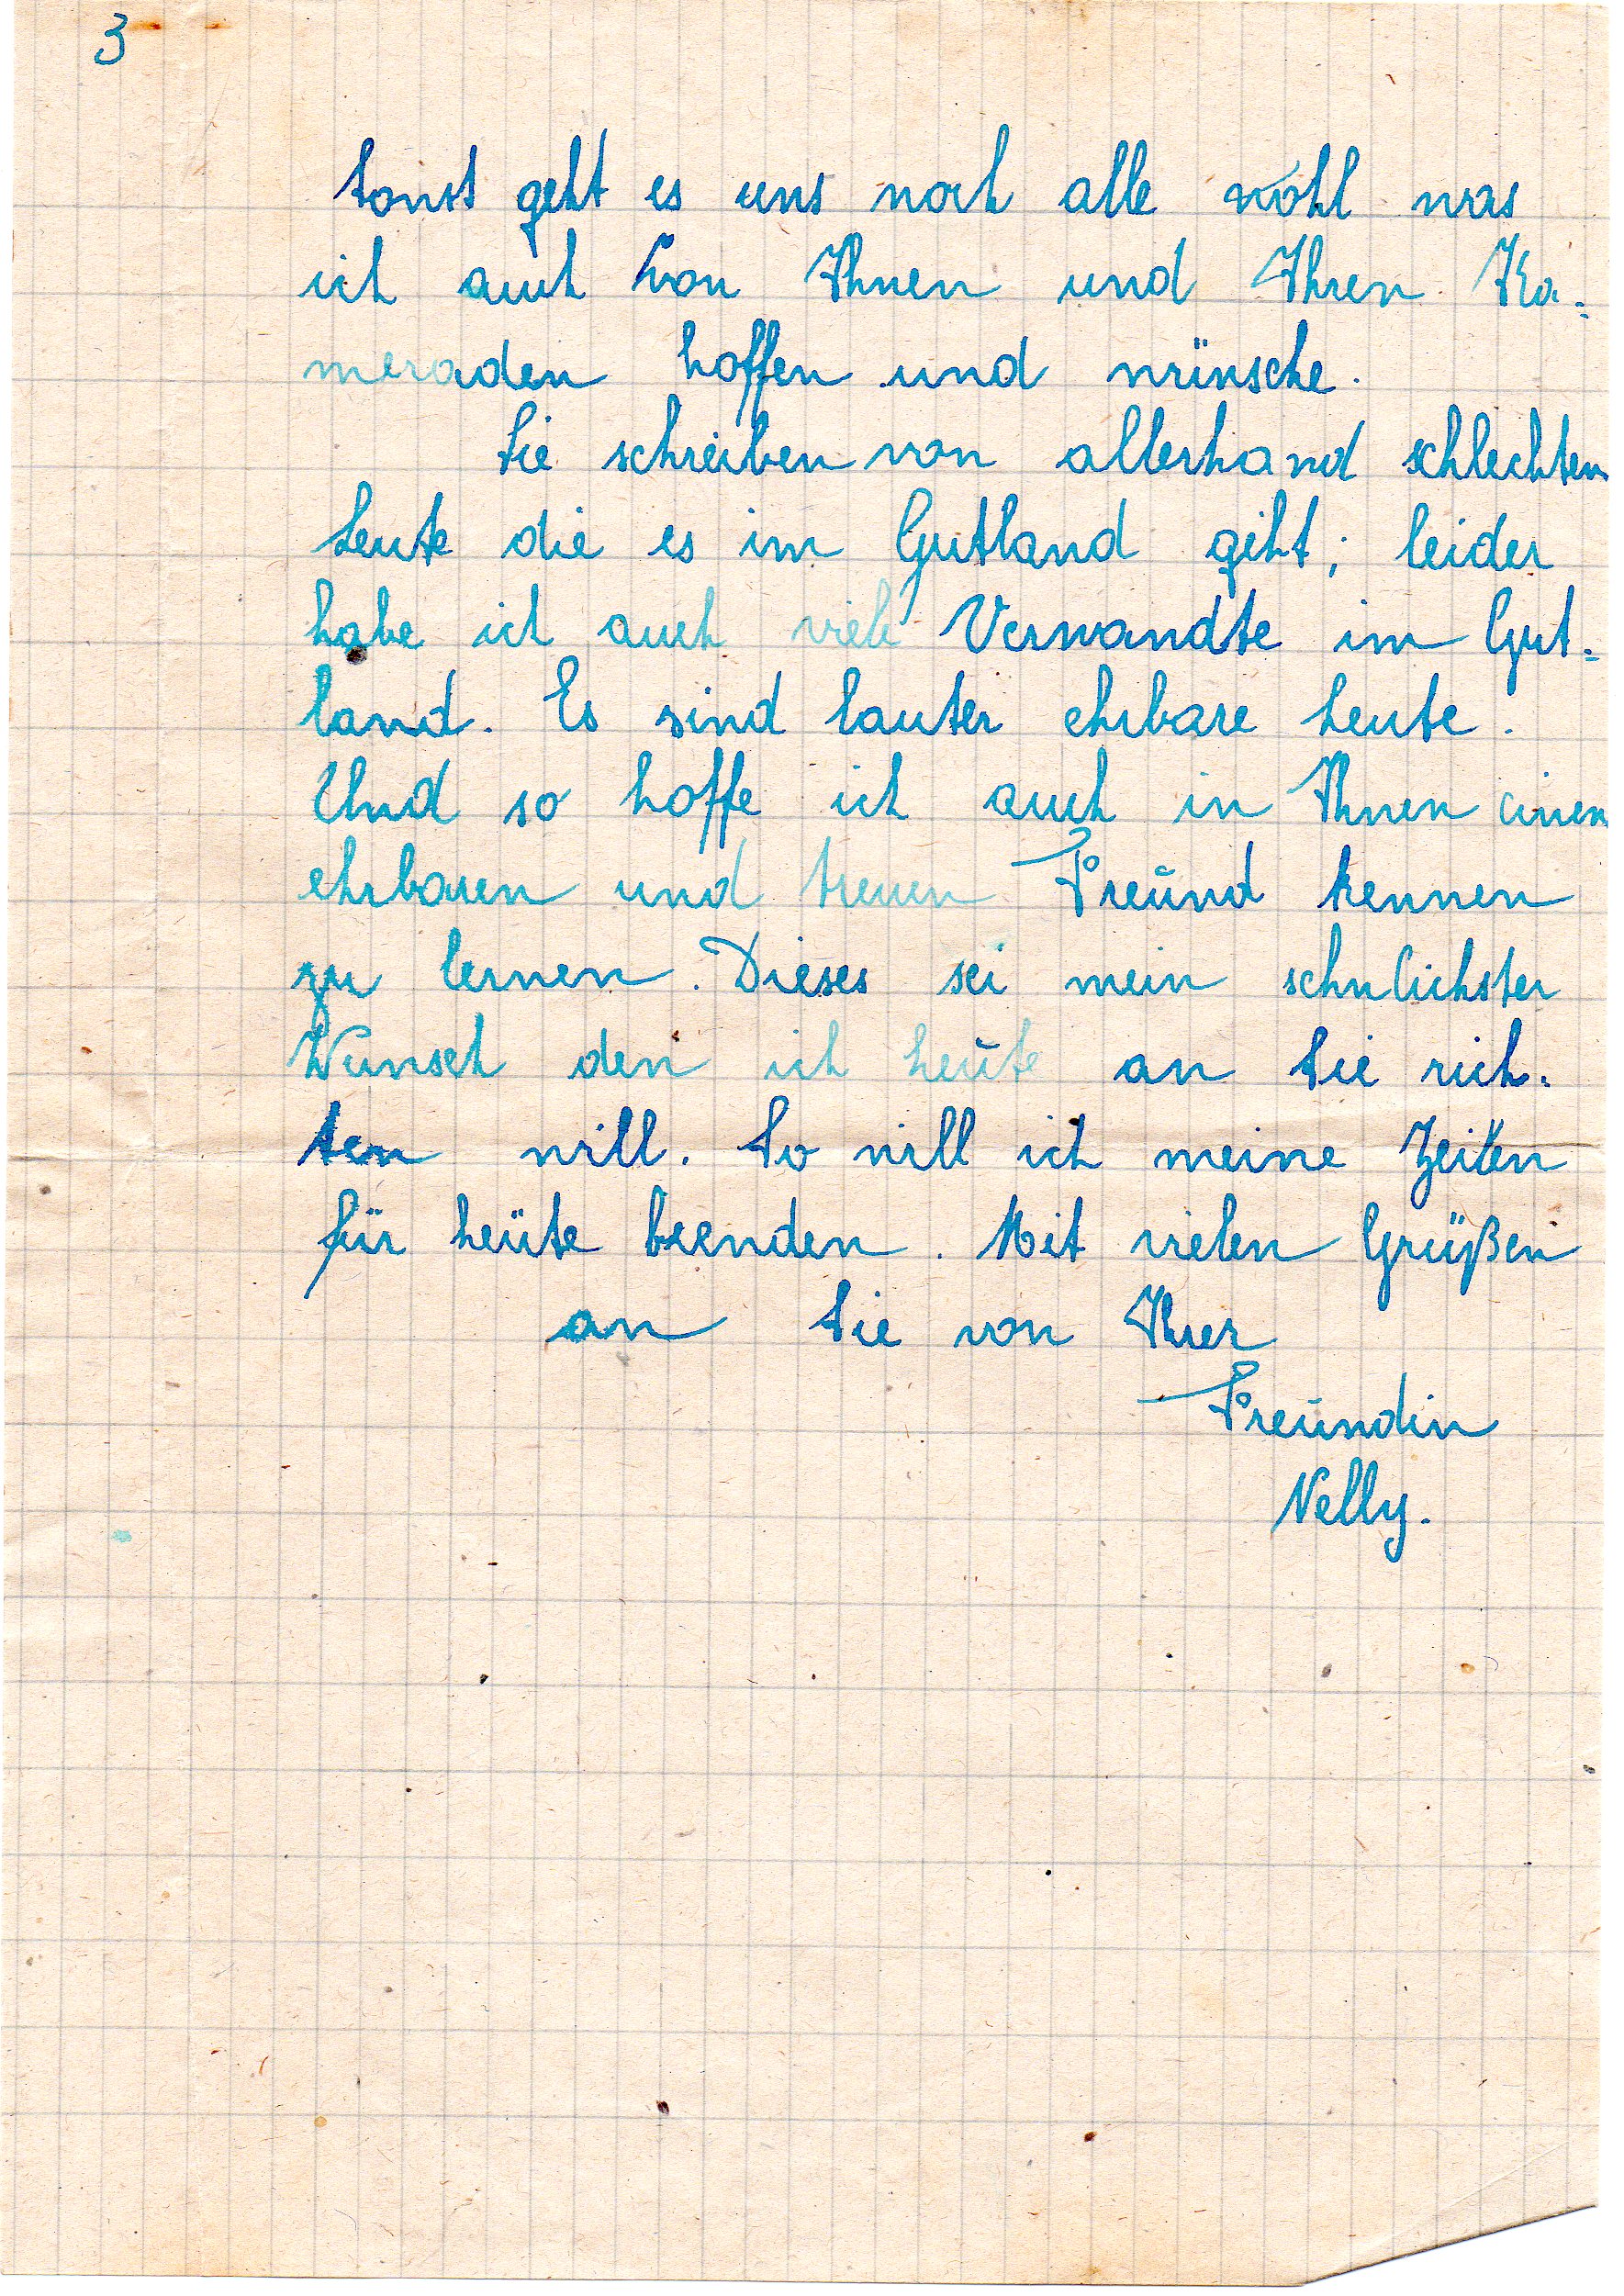 3
Sonst geht es uns noch alle wohl was
ich auch von Ihnen und Ihren Ka-
meraden hoffen und wünsche.
Sie schreiben von allerhand schlechten
Leute die es im Gutland gibt; leider
habe ich auch viele Verwandte im Gut-
land. Es sind lauter ehrbare Leute.
Und so hoffe ich auch in Ihnen einen
ehrbaren und treuen Freund kennen
zu lernen. Dieses sei mein sehnlichster
Wunsch den ich heute an Sie rich-
ten will. So will ich meine Zeilen
für heute beenden. Mit vielen Grüßen
an Sie von Ihrer
Freundin
Nelly.